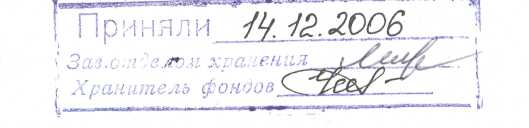 Приняли 14.12.2006
Зав.отделом хранения
Хранитель фондов